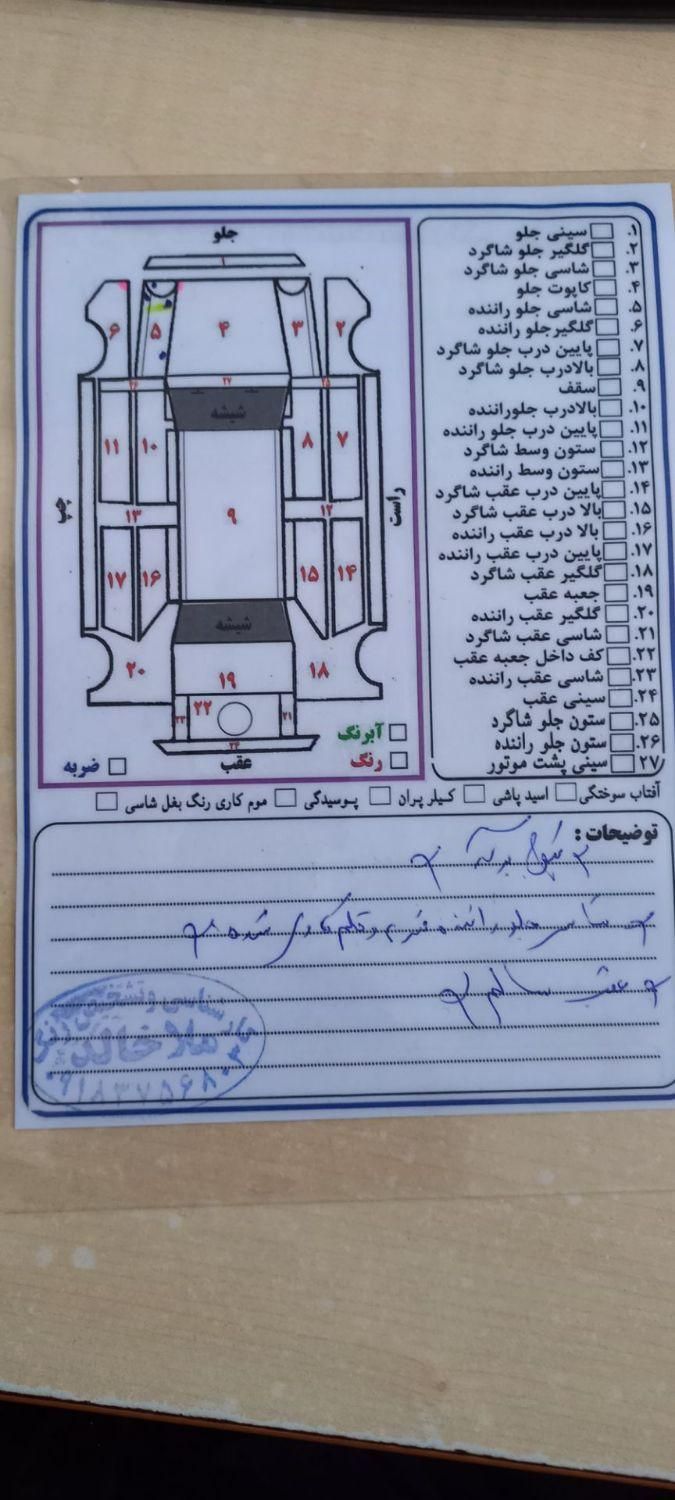 جلو
۱
۶
۵
۴
۳
۲
۲۶
۲۷
۲۵
شیشه
۱۱
۱۰
۸
۷
چپ
۹
راست
۱۳
۱۲
۱۷
۱۶
۱۵
۱۴
شیشه
۲۰
۱۹
۱۸
۲۳
۲۲
۲۱
۲۴
عقب
آبرنگ
رنگ
ضربه
۱. سینی جلو
۲. گلگیر جلو شاگرد
۳. شاسی جلو شاگرد
۴. کاپوت جلو
۵. شاسی جلو راننده
۶. گلگیرجلو راننده
۷. پایین درب جلو شاگرد
۸. بالادرب جلو شاگرد
۹. سقف
۱۰. بالادرب جلوراننده
۱۱. پایین درب جلو راننده
۱۲. ستون وسط شاگرد
۱۳. ستون وسط راننده
۱۴. پایین درب عقب شاگرد
۱۵. بالا درب عقب شاگرد
۱۶. بالا درب عقب راننده
۱۷. پایین درب عقب راننده
۱۸. گلگیر عقب شاگرد
۱۹. جعبه عقب
۲۰. گلگیر عقب راننده
۲۱. شاسی عقب شاگرد
۲۲. کف داخل جعبه عقب
۲۳. شاسی عقب راننده
۲۴. سینی عقب
۲۵. ستون جلو شاگرد
۲۶. ستون جلو راننده
۲۷. سینی پشت موتور
آفتاب سوختگی اسید پاشی کیلر پران پوسیدگی موم کاری رنگ بغل شاسی
توضیحات :
شاسی جلو راننده و قلم کاری شده
عقب سالم
کارشناسی و تشخیص